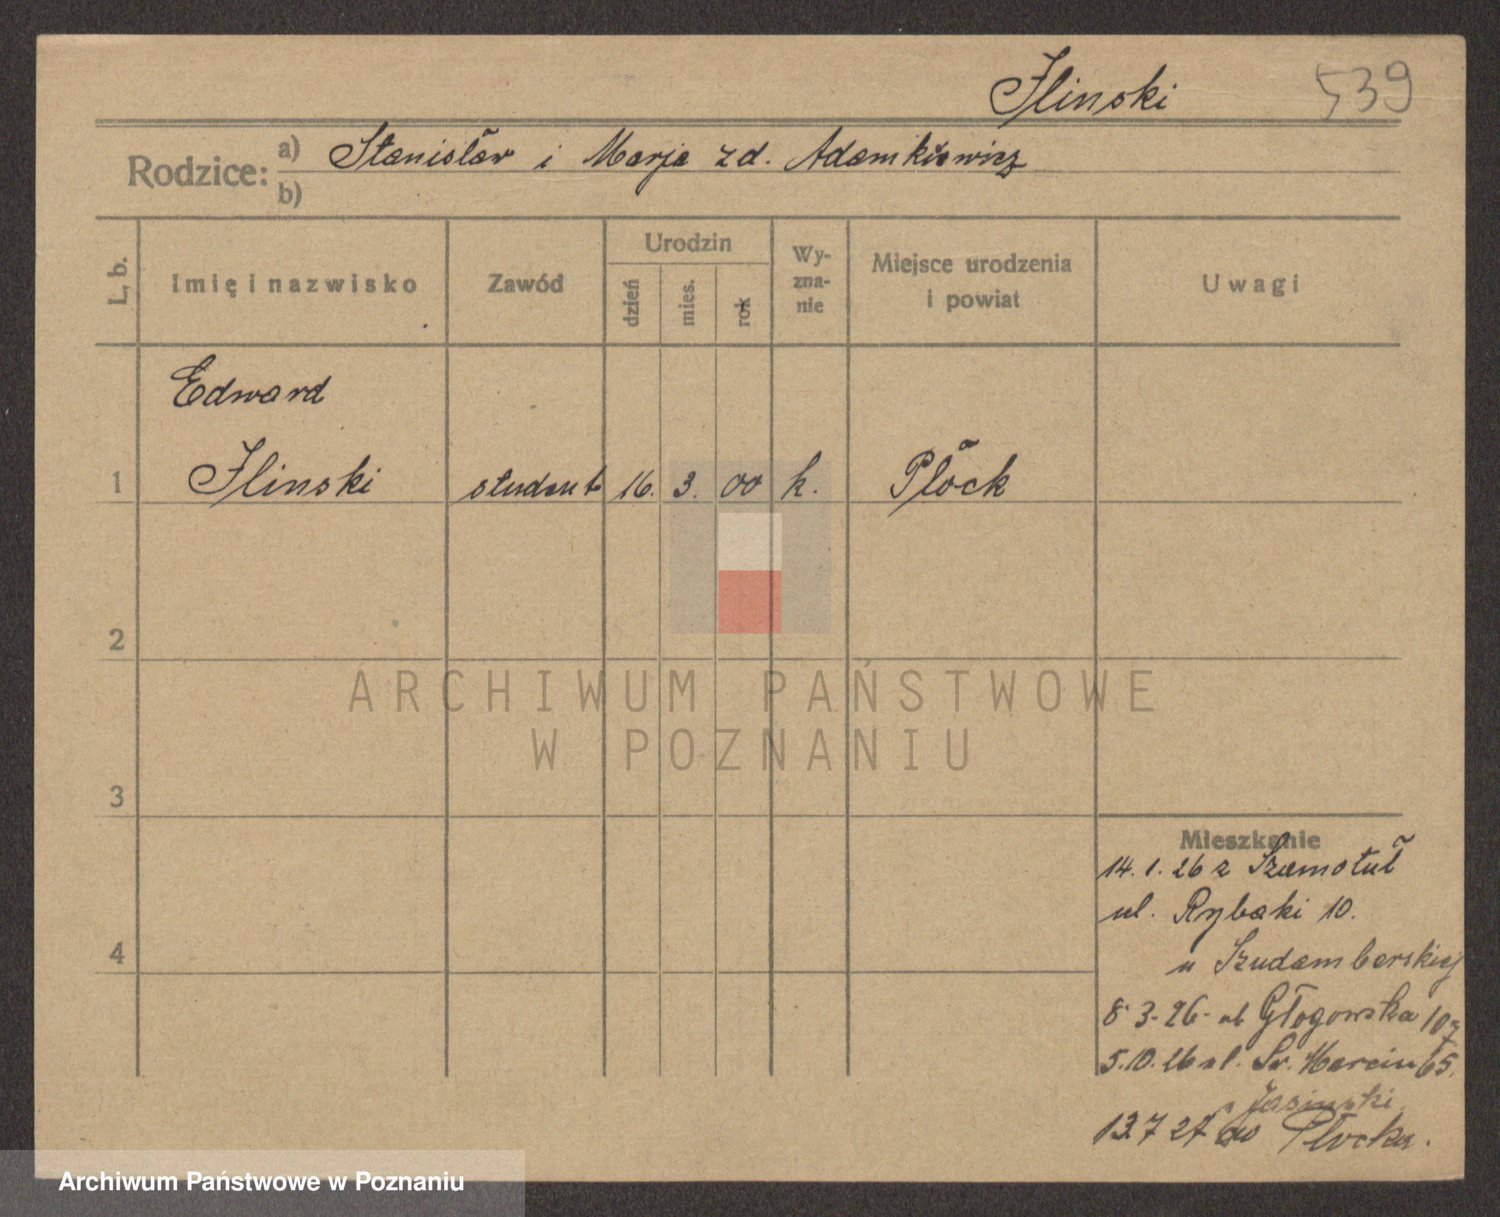 Ilinski 539
Rodzice: a) Stanisław i Marja zd. Adamkiewicz
b)
L. b. Imię i nazwisko Zawód Urodzin dzień mies. rok Wy-zna-nie Miejsce urodzenia i powiat Uwagi
Edward
1 Ilinski student 16. 3. 00 k. Płock
2
ARCHIWUM PAŃSTWOWE
W POZNANIU
3
Mieszkanie
14. 1. 26 z Szamotuł
ul. Rybaki 10.
4
u Szudamberskiej
8 3. 26 ul Głogowska 107
5. 10. 26 ul. Św. Marcin 65.
u Jasinski
13 7 27 do Płocka.
Archiwum Państwowe w Poznaniu